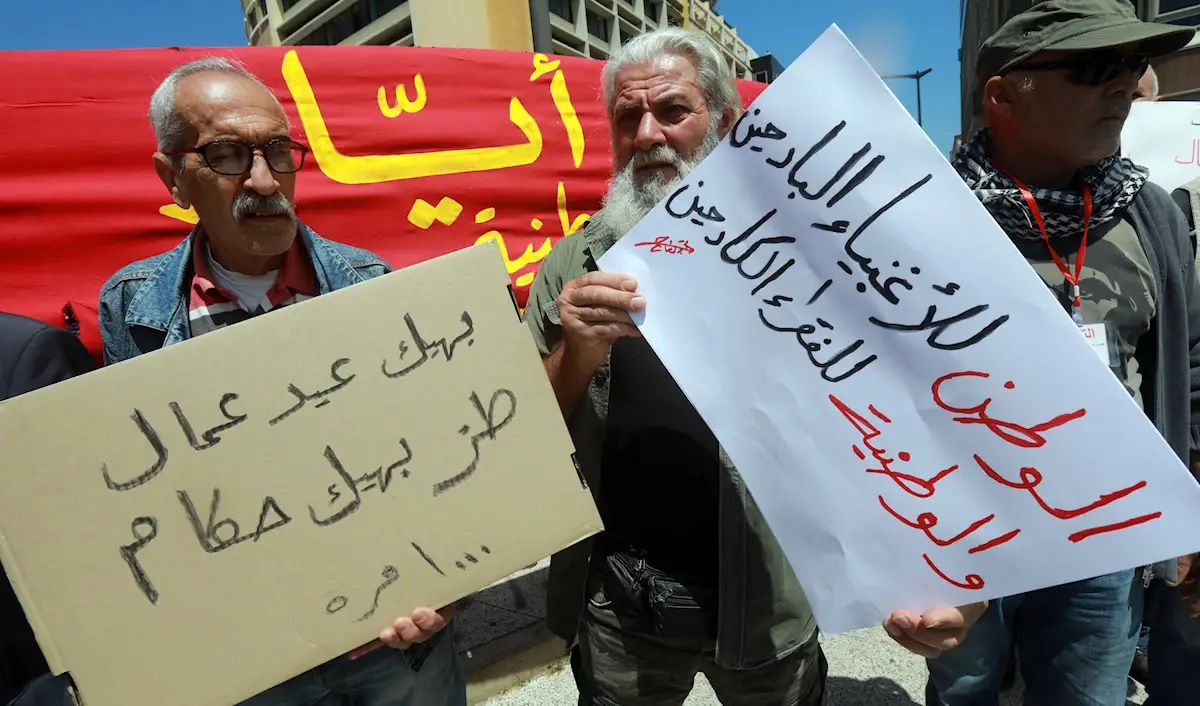 طنية
بهيك عيد عمال
طز بهيك حكام
١٠٠٠ مره
الوطن للأغنياء البادحين
والوطنية للفقراء الكادحين